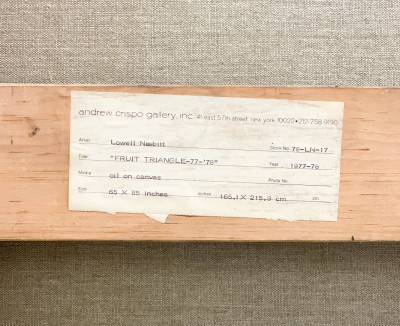 andrew crispo gallery, inc. 41 east 57th street new york 10022•212•758 9190
Artist Lowell Nesbitt Stock No. 78-LN-17
Title "FRUIT TRIANGLE-77-'78" Year 1977-78
Media oil on canvas Photo No.
Size 65 X 85 inches inches 165.1X 215.9 cm cm